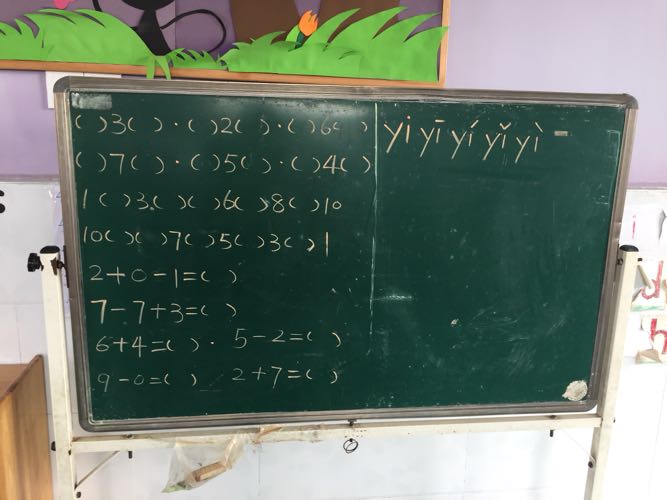 ( )3( ) . ( )2( ) . ( )6( )
( )7( ) . ( )5( ) . ( )4( )
1( )3( )( )6( )8( )10
10( )( )7( )5( )3( )1
2+0-1=( )
7-7+3=( )
6+4=( ) . 5-2=( )
9-0=( ) 2+7=( )
yi yī yí yǐ yì